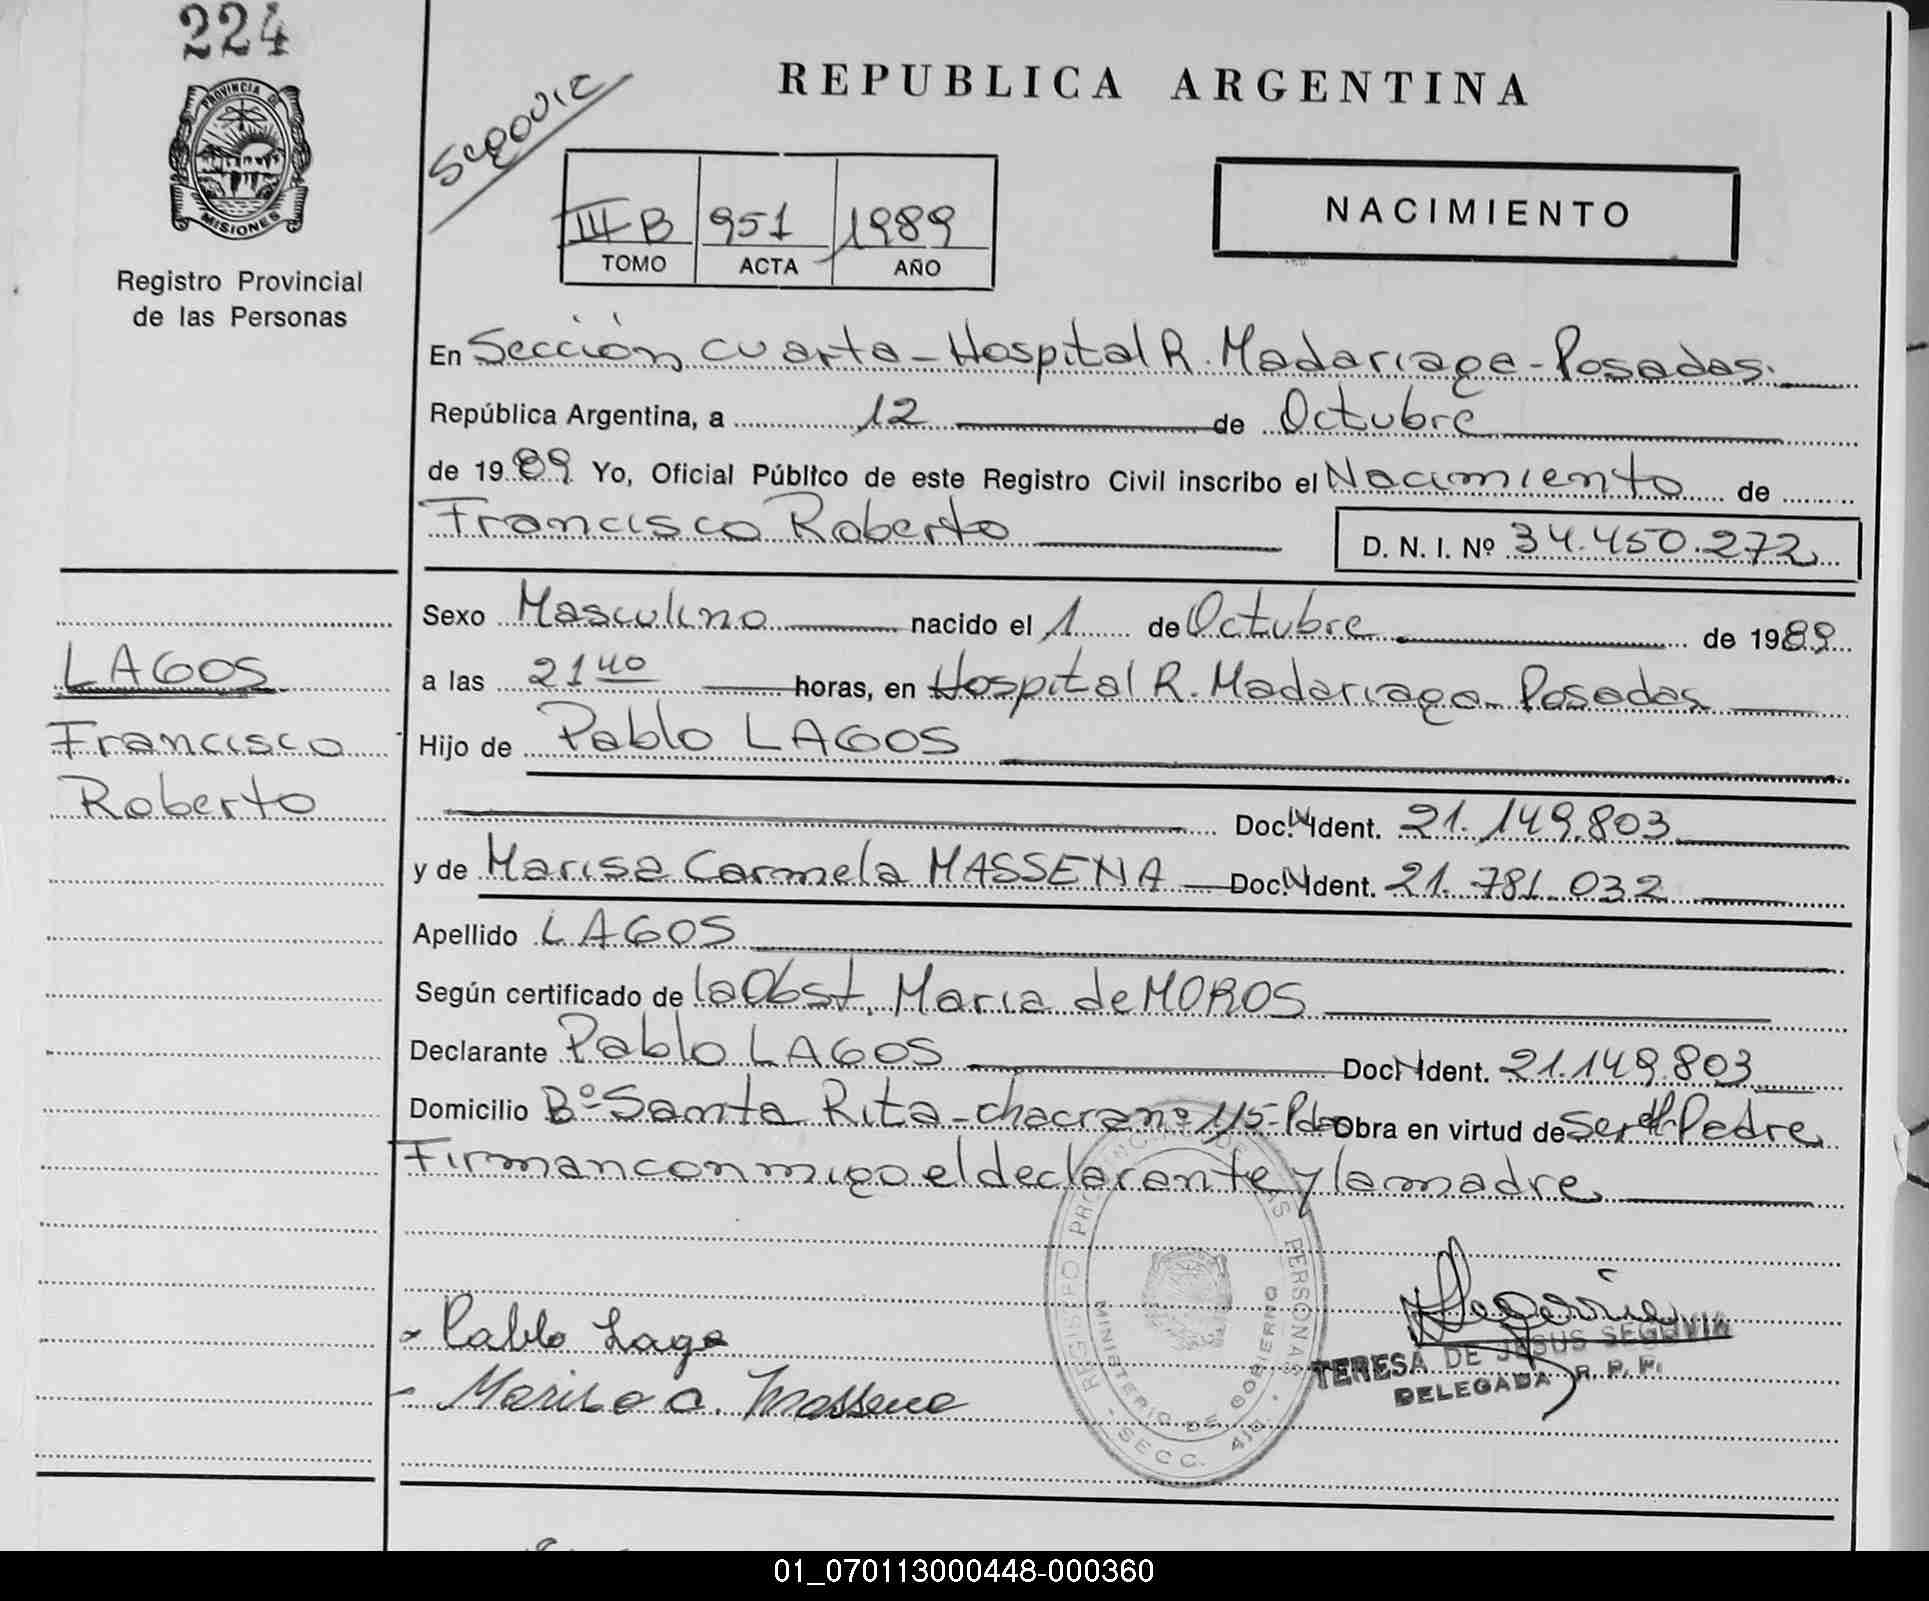 224
PROVINCIA DE
MISIONES
Registro Provincial
de las Personas
Segovia
REPUBLICA ARGENTINA
III B 951 1989
TOMO ACTA AÑO
NACIMIENTO
En Sección cuarta - Hospital R. Madariaga - Posadas.
República Argentina, a 12 de Octubre
de 1989 Yo, Oficial Público de este Registro Civil inscribo el Nacimiento de
Francisco Roberto D. N. I. Nº 34.450.272
Sexo Masculino nacido el 1 de Octubre de 1989
a las 21 40 horas, en Hospital R. Madariaga - Posadas
Hijo de Pablo LAGOS
Doc. N Ident. 21.149.803
y de Marisa Carmela MASSENA Doc. N Ident. 21.781.032
Apellido LAGOS
Según certificado de la Obst. Maria de MOROS
Declarante Pablo LAGOS Doc N Ident. 21.149.803
Domicilio Bº Santa Rita - chacra nº 115 - Pdas Obra en virtud de ser el Padre
Firman conmigo el declarante y la madre
LAGOS
Francisco
Roberto
Pablo Lago
Marisa C. Massena
REGISTRO PROVINCIAL DE LAS PERSONAS
MINISTERIO DE GOBIERNO
SECC. 4ta.
Segovia
TERESA DE JESUS SEGOVIA
DELEGADA R. P. P.
01_070113000448-000360